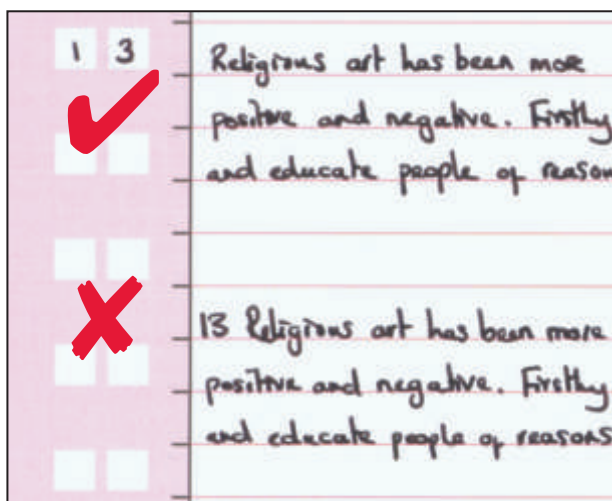 13 Religious art has been more
positive and negative. Firstly
and educate people of reason
13 Religious art has been more
positive and negative. Firstly
and educate people of reasons